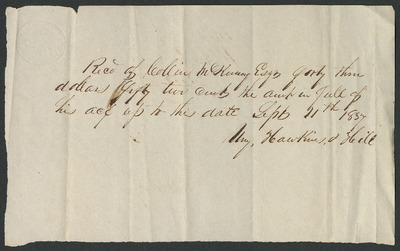 Recd of Collin McKinney Esqr forty three
dollars fifty two cents the amt in full of
his act up to this date Sept 11th 1837
Hawkins & Hill